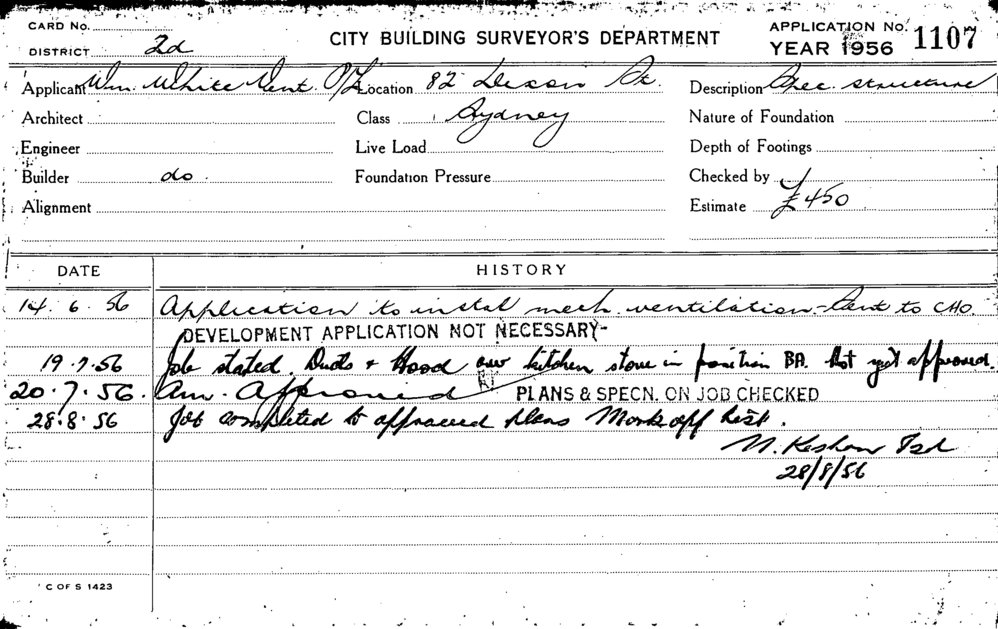 CARD No.
DISTRICT 2d
CITY BUILDING SURVEYOR'S DEPARTMENT
APPLICATION No. 1107
YEAR 1956
Applicant Wm. White Vent. P/L Location 82 Dixon St. Description Spec. structure
Architect Class Sydney Nature of Foundation
Engineer Live Load Depth of Footings
Builder do. Foundation Pressure Checked by
Alignment Estimate £450
DATE HISTORY
14.6.56 Application to instal mech. ventilation - to CHO
DEVELOPMENT APPLICATION NOT NECESSARY-
19.7.56 Job stated. Ducts & Hood over kitchen stove in position BA. Not yet approved.
20.7.56. Am. Approved PLANS & SPECN. ON JOB CHECKED
28.8.56 Job completed to approved plans Mark off list.
28/8/56
C OF S 1423